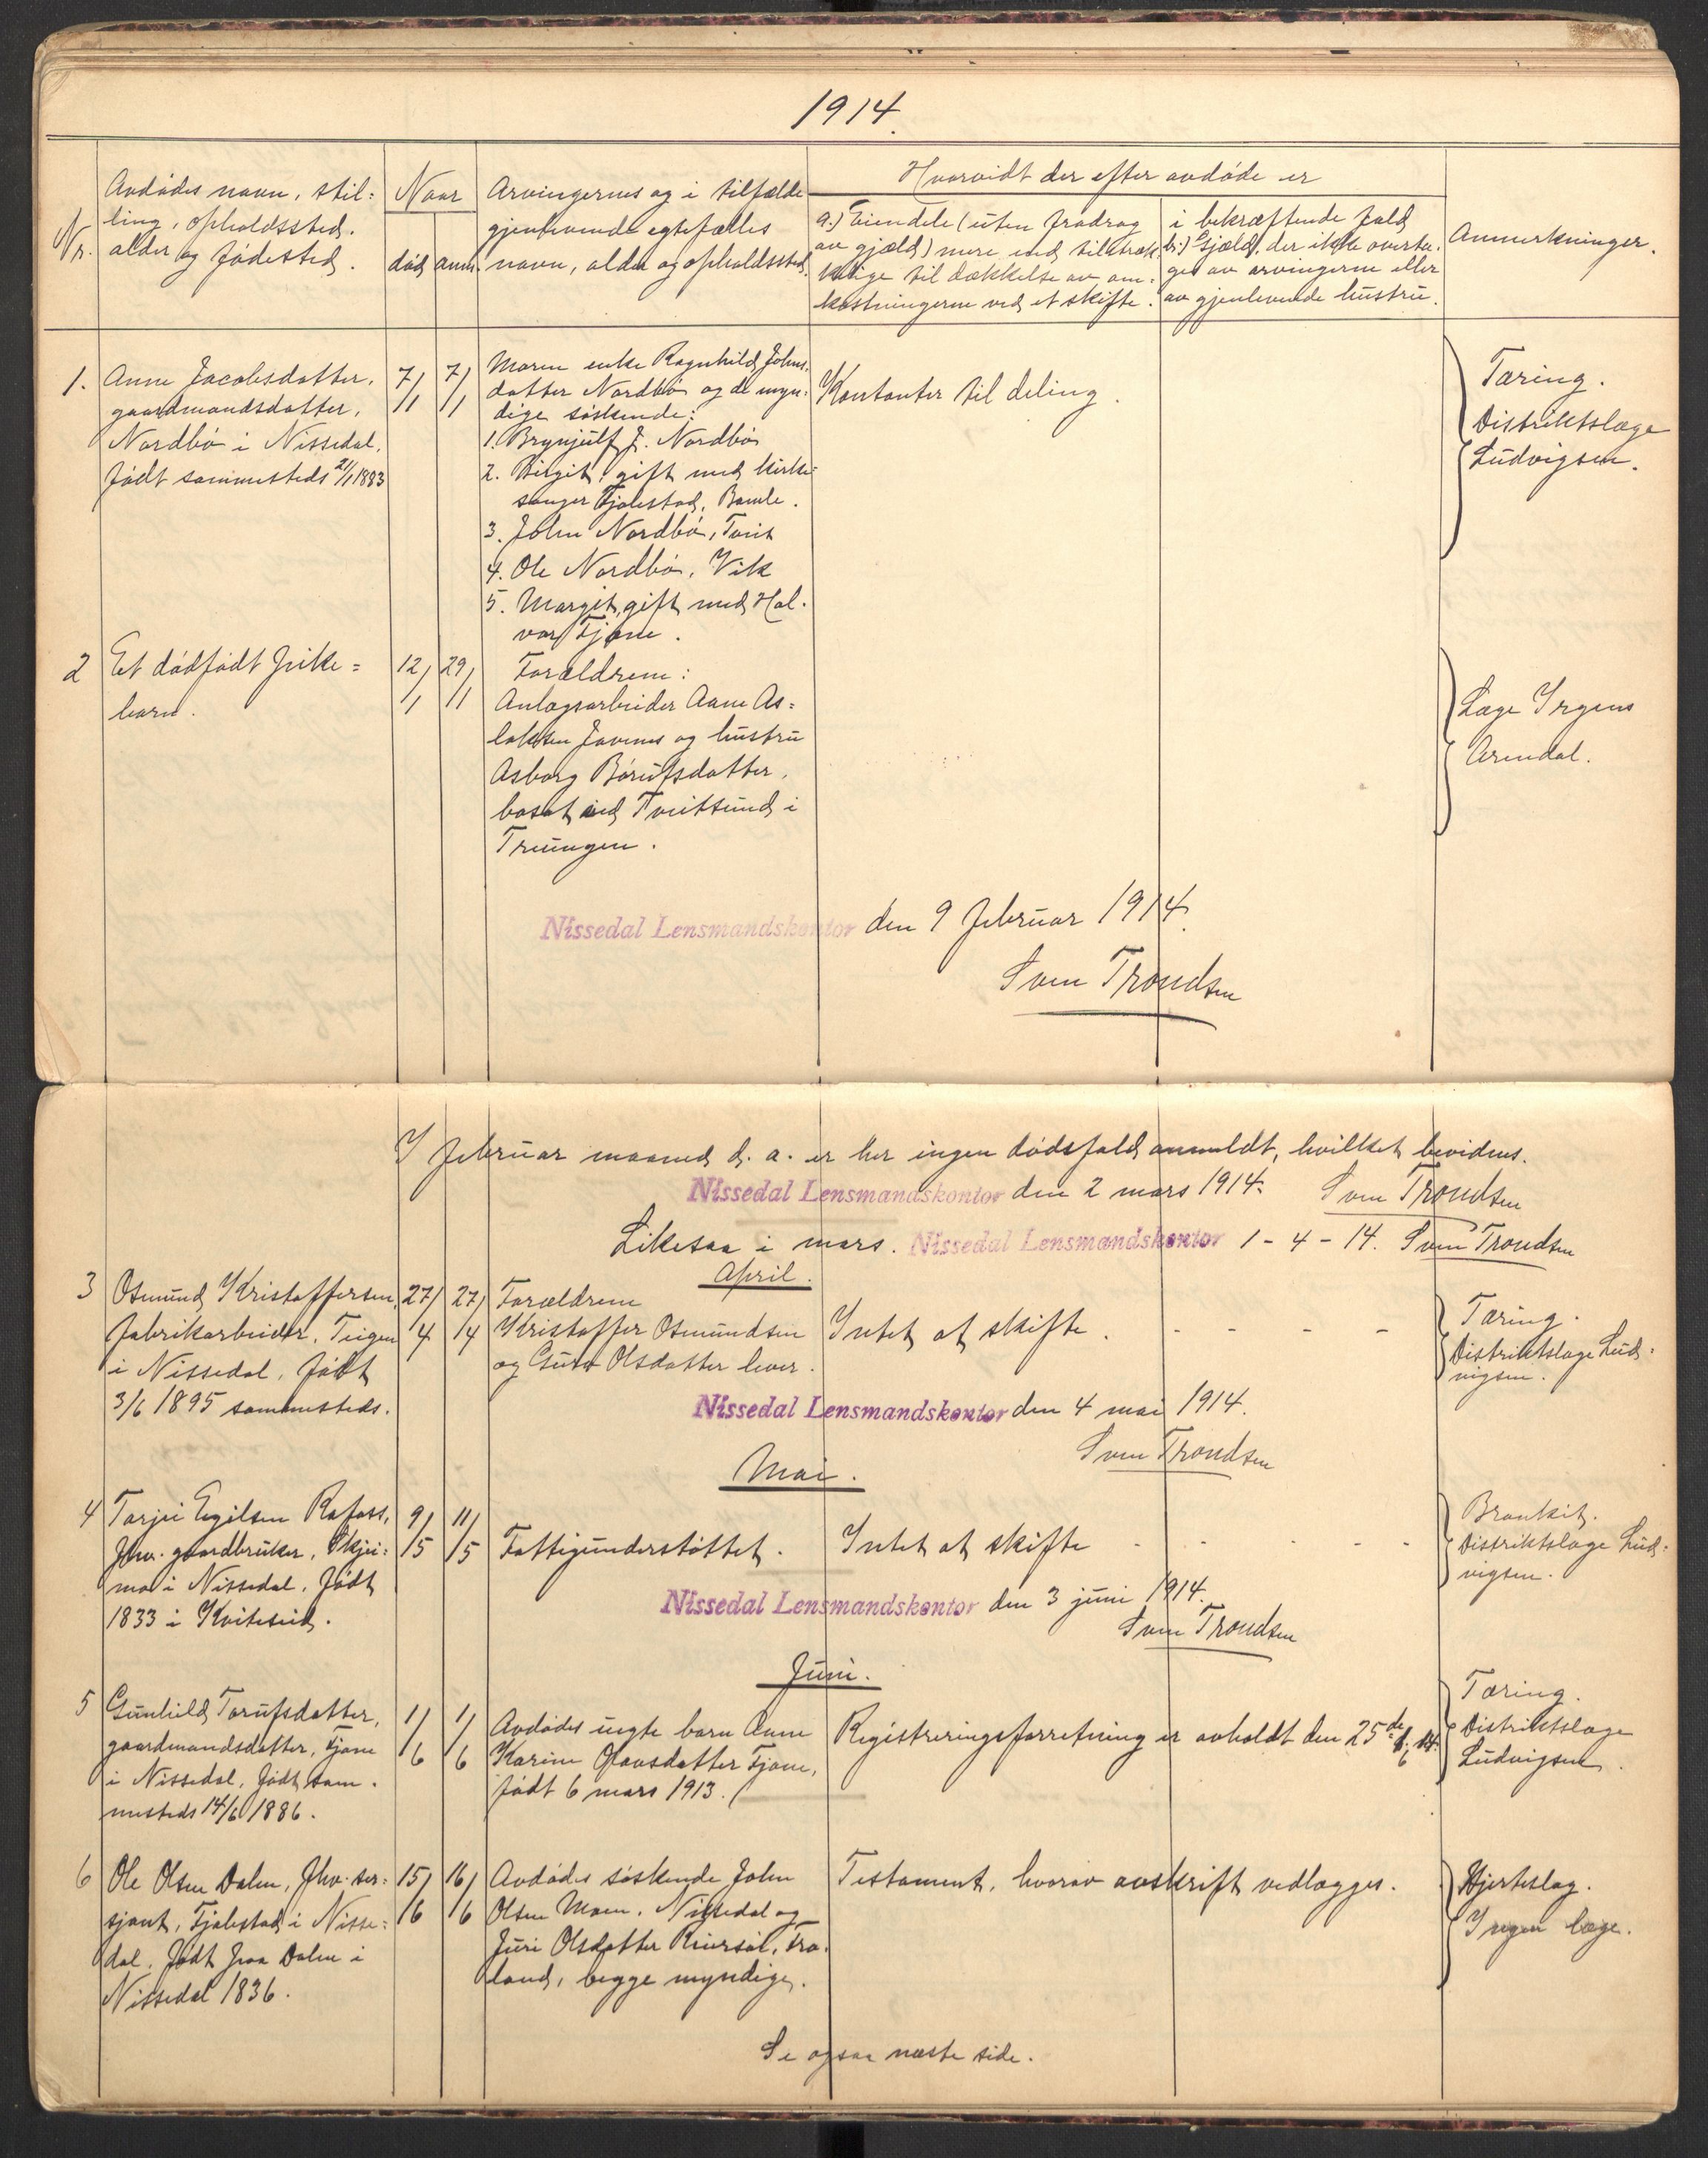 1914.
Nr.
Avdødes navn, stil=
ling, opholdssted,
alder og fødested.
Naar
død
anm.
Arvingernes og i tilfælde
gjenlevende egtefælles
navn, alder og opholdssted.
Hvorvidt der efter avdøde er
a.) Eiendele (uten fradrag
av gjæld) mere end tilstræk-
kelige til dækkelse av om-
kostningerne ved et skifte.
i bekræftende fald
b.) Gjæld, der ikke overta-
ges av arvingerne eller
av gjenlevende hustru.
Anmerkninger.
1.
Anne Jacobsdatter,
gaardmandsdatter,
Nordbø i Nissedal,
født sammesteds 21/1 1883
7/1
7/1
Moren enke Ragnhild Johns-
datter Nordbø og de myn-
dige søskende:
1. Brynjulf J. Nordbø
2. Birgit, gift med kirke=
sanger Fjalestad, Bamle.
3. John Nordbø,
4. Ole Nordbø, Vik
5. Margit, gift med Hal-
vor Tjøne.
Kontanter til deling.
Tæring.
Distriktslæge
Ludvigsen.
2
Et dødfødt pike=
barn.
12/1
29/1
Forældrene:
Anlægsarbeider Aane As=
laksen Javnes og hustru
Asborg Børufsdatter,
bosat ved Tveitsund i
Treungen.
Læge Irgens
Arendal.
Nissedal Lensmandskontor den 9 februar 1914.
Sven Trondsen
I februar maaned d. a. er her ingen dødsfald anmeldt, hvilket bevidnes.
Nissedal Lensmandskontor den 2 mars 1914. Sven Trondsen
Likesaa i mars. Nissedal Lensmandskontor 1-4-14. Sven Trondsen
April.
3
Osmund Kristoffersen,
fabrikarbeider, Teigen
i Nissedal, født
3/6 1895 sammesteds.
27/4
27/4
Forældrene
Kristoffer Osmundsen
og Guro Olsdatter lever.
Intet at skifte. - - - -
Tæring.
Distriktslæge Lud-
vigsen.
Nissedal Lensmandskontor den 4 mai 1914.
Sven Trondsen
Mai.
4
Tarjei Egilsen Rafoss,
fhv. gaardbruker, Skjei=
mo i Nissedal, født
1833 i Kviteseid.
9/5
11/5
Fattigunderstøttet.
Intet at skifte - - - - -
Bronkit.
Distriktslæge Lud-
vigsen.
Nissedal Lensmandskontor den 3 juni 1914.
Sven Trondsen
Juni.
5
Gunhild Torufsdatter,
gaardmandsdatter, Tjøne
i Nissedal, født sam-
mesteds 14/6 1886.
1/6
1/6
Avdødes uegte barn Anne
Karine Olavsdatter Tjøne,
født 6 mars 1913.
Registreringsforretning er avholdt den 25de 6. 14.
Tæring.
Distriktslæge
Ludvigsen.
6
Ole Olsen Dalen, fhv. ser=
sjant, Fjalestad i Nisse=
dal, født paa Dalen i
Nissedal 1836.
15/6
16/6
Avdødes søskende John
Olsen Moen, Nissedal og
Juri Olsdatter Reiersøl, Fro-
land, begge myndige.
Testament, hvorav avskrift vedlægges.
Hjerteslag.
Ingen læge.
Se ogsaa næste side.